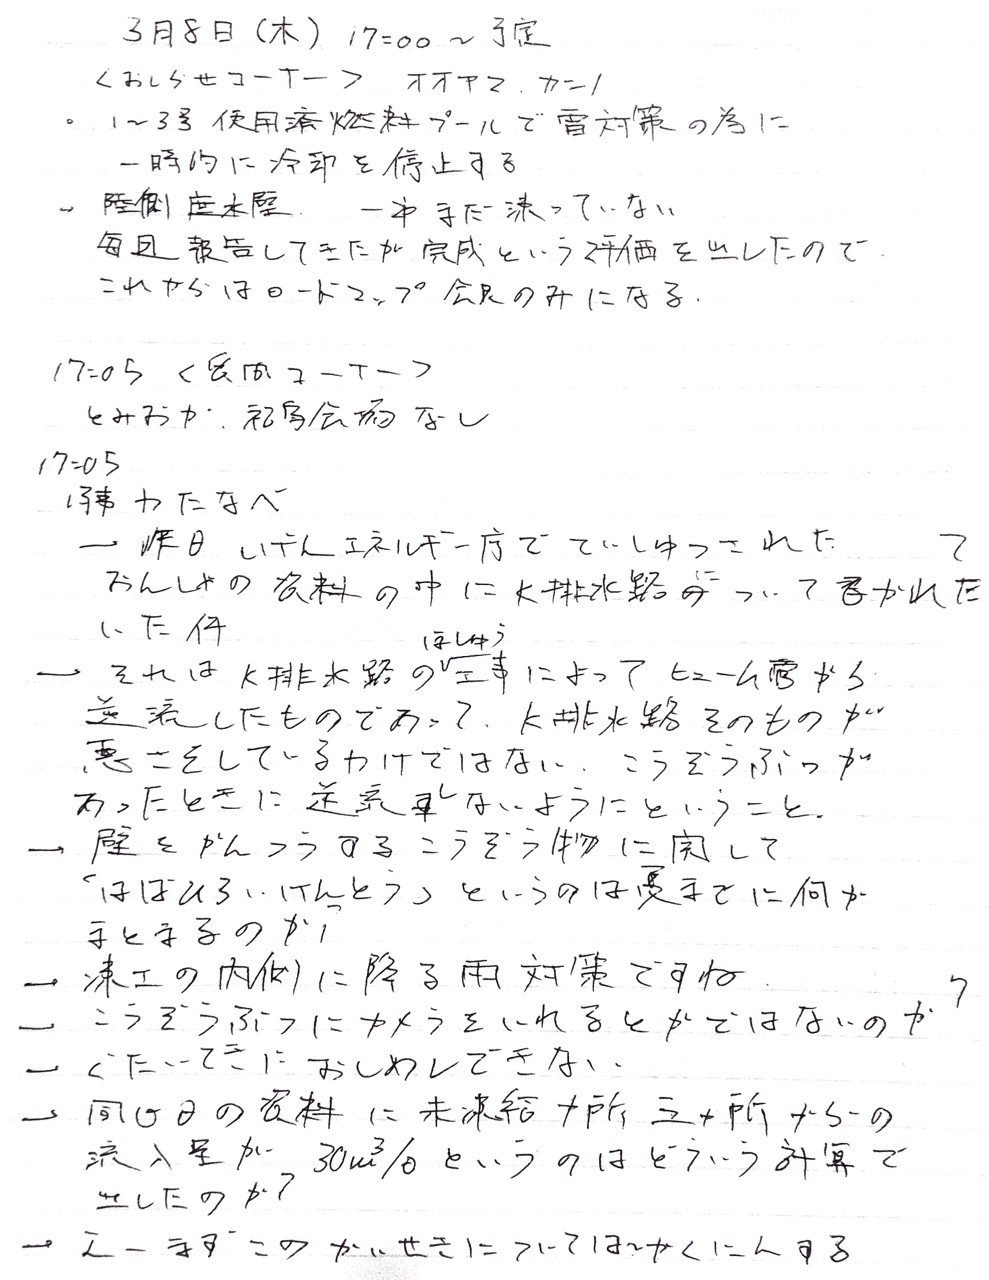 3月8日(木) 17:00～予定
<おしらせコーナー> オオヤマ カンノ
・1～3号使用済燃料プールで雪対策の為に
一時的に冷却を停止する
陸側遮水壁 一部まだ凍っていない
毎回報告してきたが完成という評価を出したので
これからはロードマップ会見のみになる.
17:05 <質問コーナー>
とみおか. 福島会場なし
17:05
わたなべ
→ 昨日 しげんエネルギー庁でていしゅつされた て
おんしゃの資料の中にK排水路について書かれた
いた件
ほしゅう
→ それはK排水路の工事によってヒューム管から
逆流したものであって、K排水路そのものが
悪さをしているわけではない. こうぞうぶつが
あったときに逆流しないようにということ.
→ 壁をかんつうするこうぞう物に関して
「はばひろいけんとう」というのは夏までに何か
まとまるのか?
→ 凍土の内側に降る雨対策ですね
→ こうぞうぶつにカメラをいれるとかではないのか?
→ ぐたいてきにおしめしできない.
→ 同じ日の資料に未凍結ヶ所 三ヶ所からの
流入量が 30m³/日というのはどういう計算で
出したのか?
→ えーまずこのかいせきについてはかくにんする